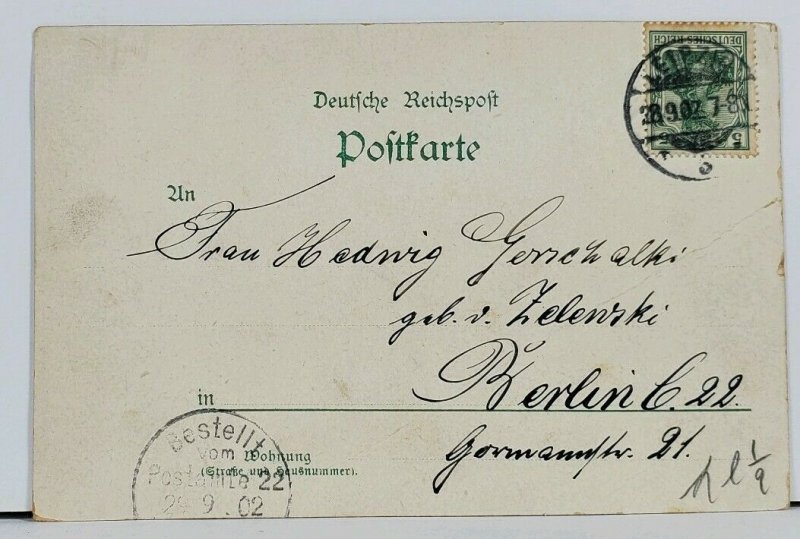 DEUTSCHES REICH
5
28.9.02. 7-8N
Deutsche Reichspost
Postkarte
An
Frau Hedwig Gorschalki
geb. v. Zelewski
in Berlin C. 22.
Gormannstr. 21.
Wohnung
(Straße und Hausnummer).
Bestellt
vom
Postamte 22
29.9.02